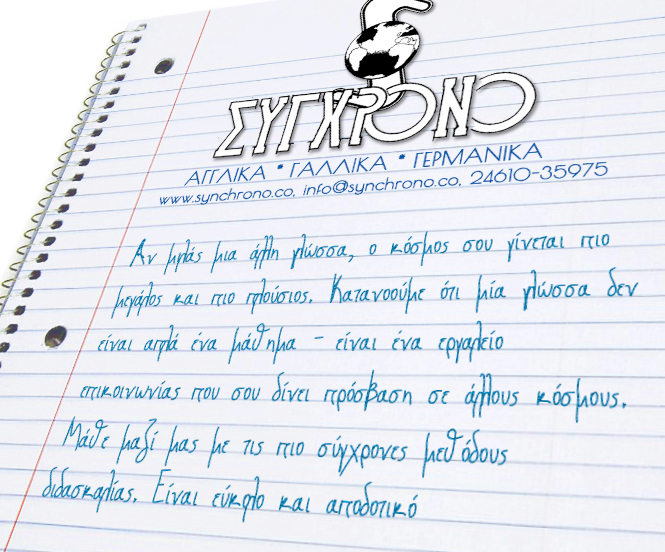 ΣΥΓΧΡΟΝΟ
ΑΓΓΛΙΚΑ * ΓΑΛΛΙΚΑ * ΓΕΡΜΑΝΙΚΑ
www.synchrono.co, info@synchrono.co, 24610-35975
Αν μιλάς μια άλλη γλώσσα, ο κόσμος σου γίνεται πιο
μεγάλος και πιο πλούσιος. Κατανοούμε ότι μία γλώσσα δεν
είναι απλά ένα μάθημα – είναι ένα εργαλείο
επικοινωνίας που σου δίνει πρόσβαση σε άλλους κόσμους.
Μάθε μαζί μας με τις πιο σύγχρονες μεθόδους
διδασκαλίας. Είναι εύκολο και αποδοτικό